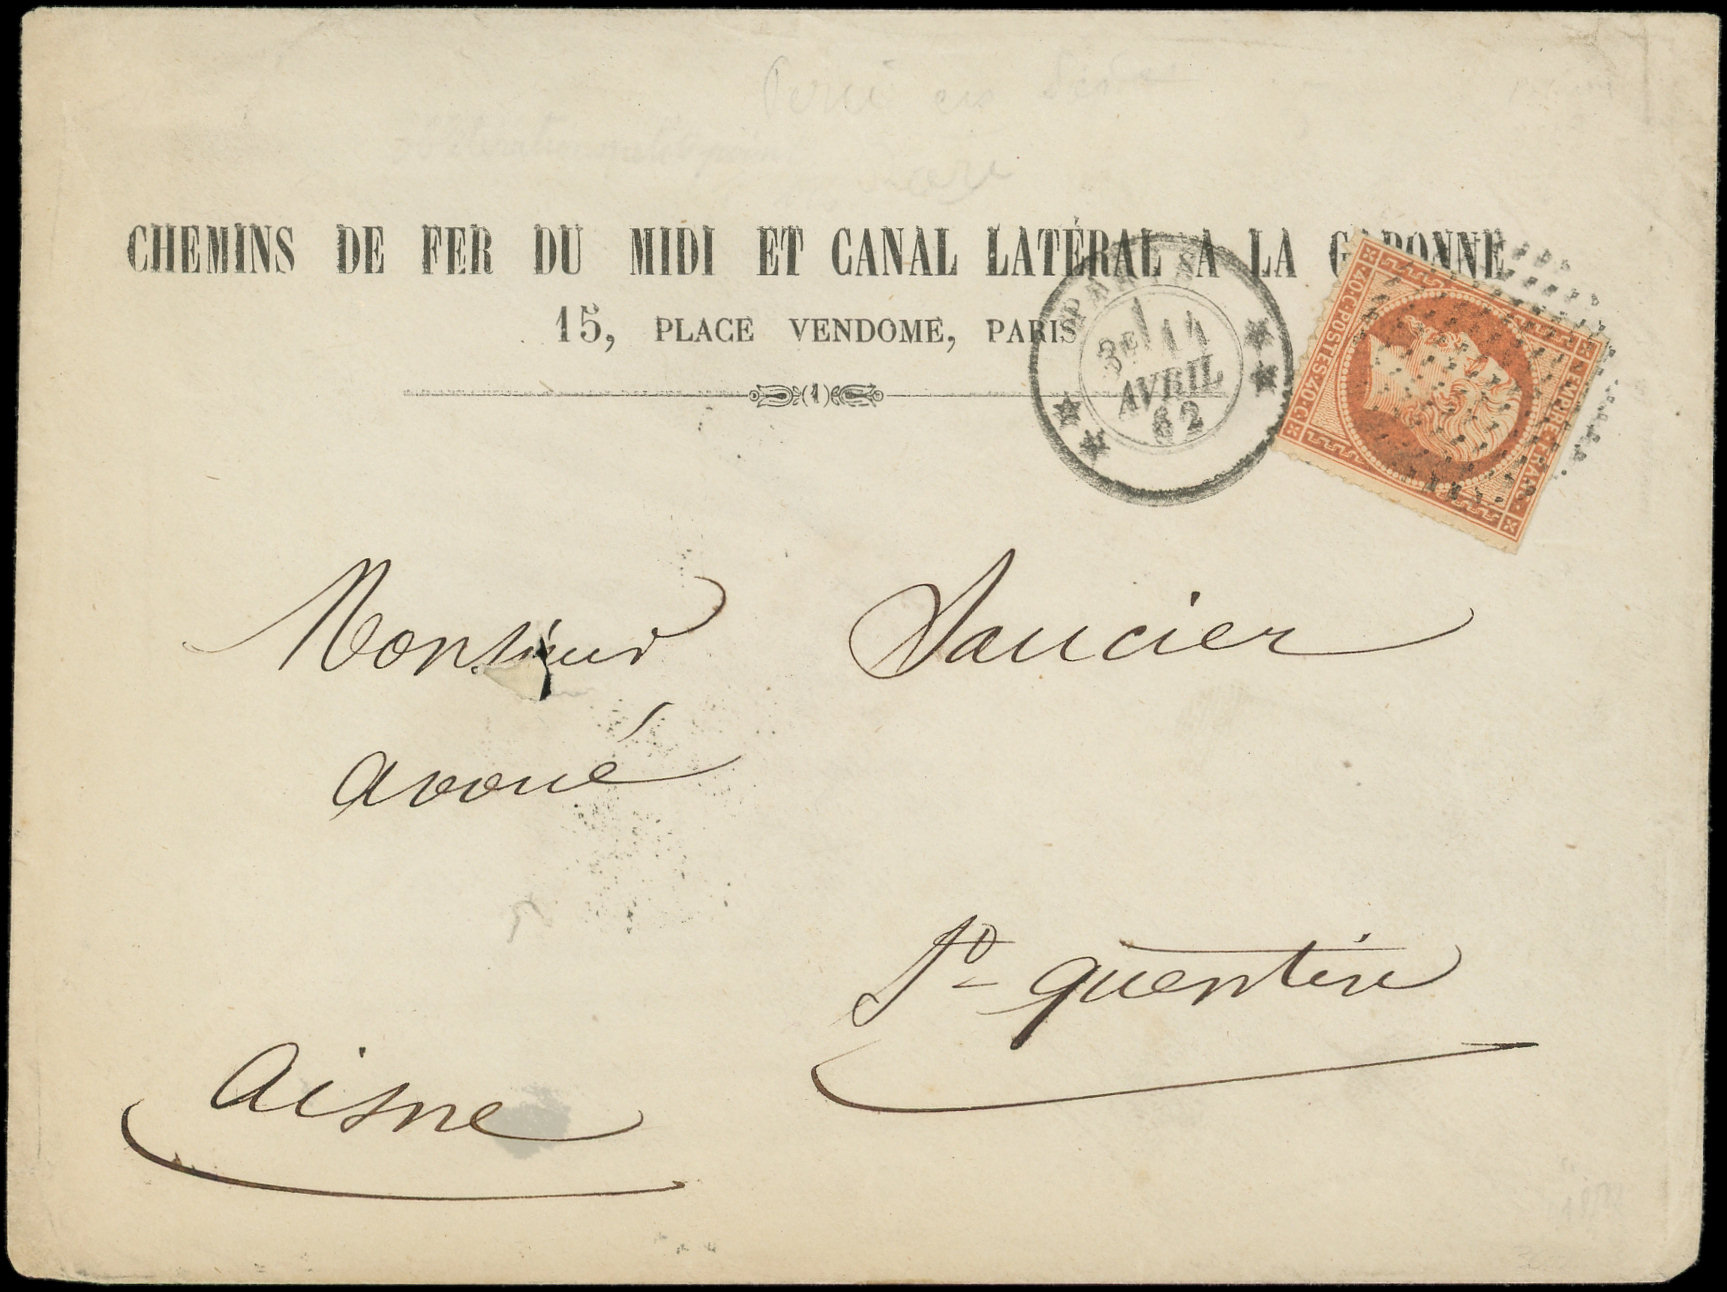 CHEMINS DE FER DU MIDI ET CANAL LATÉRAL A LA GARONNE
15, PLACE VENDOME, PARIS
(1)
PARIS
3E 14
AVRIL
62
40.C.POSTES.40.C.
EMPIRE.FRANC.
Monsieur Saucier
avoué
St quentin
Aisne